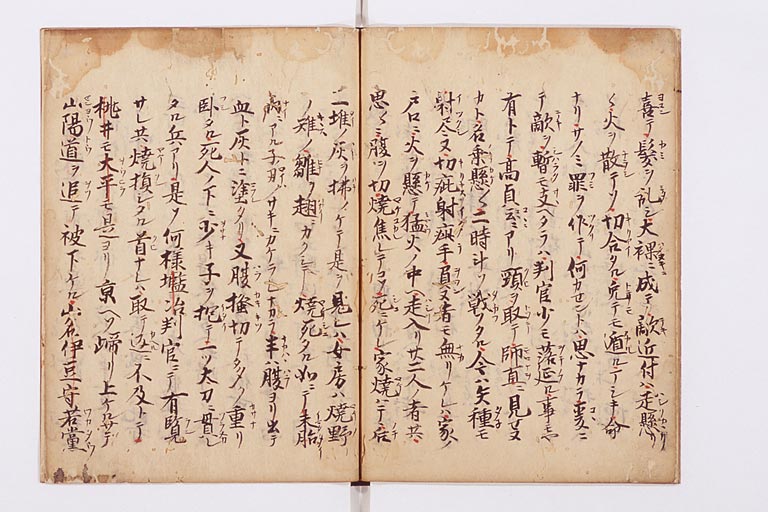 喜テ髪ヲ乱シ大裸ニ成テ敵近付ハ走懸リ
〱火ヲ散テソ切合タル免テモ遁ルマシキ命
ナリサノミ罪ヲ作テ何カセントハ思ナカラ爰ニ
テ敵ヲ暫モ支ヘタラハ判官少モ落延ル事モヤ
有トテ高貞云ニアリ頸ヲ取テ師直ニ見セヨ
カト名乗懸〱二時斗ソ戦タル今ハ矢種モ
射尽又切疵射疵手負ヌ者モ無リケレハ家ノ
戸口ニ火ヲ懸テ猛火ノ中ヘ走入リ廿二人ノ者共
思〱ニ腹ヲ切焼焦レテコソ死ニケレ家焼ハテヽ后
一堆ノ灰ヲ拂ノケテ是ヲ見レハ女房ハ焼野
ノ雉ノ雛ヲ翅ニカクシテ焼死タル如ニテ未胎
内ニアル子刃ノサキニカケラレナカラ半ハ腹ヨリ出テ
血ト灰トニ塗タリ又腹掻切テタクノ重リ
臥タル死人ノ下ニ少キ子ヲ抱テ一ツ太刀ニ貫レ
タル兵アリ是ヲ何様塩冶判官ニテ有覧
サレ共焼損シタル首ナレハ取テ返ニ不及トテ
桃井モ大平モ是ヨリ京ヘソ帰リ上ケルサテ
山陽道ヲ追テ被下ケル山名伊豆守若黨